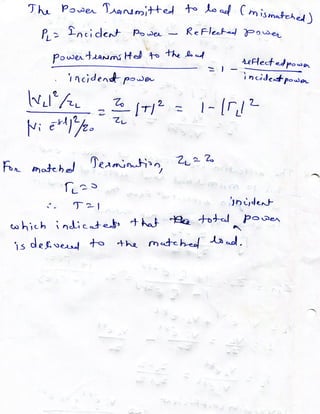 The Power Transmitted to load (mismatched)
PL = Incident Power - Reflected power
power transmitted to the load / incident power = 1 - reflected power / incident power
|VL|²/ZL / |Vi e^-γl|²/Z0 = Z0/ZL |T|² = 1-|ΓL|²
For matched Termination, ZL = Z0
ΓL = 0
∴ T = 1
which indicates that the total incident power
is delivered to the matched load.